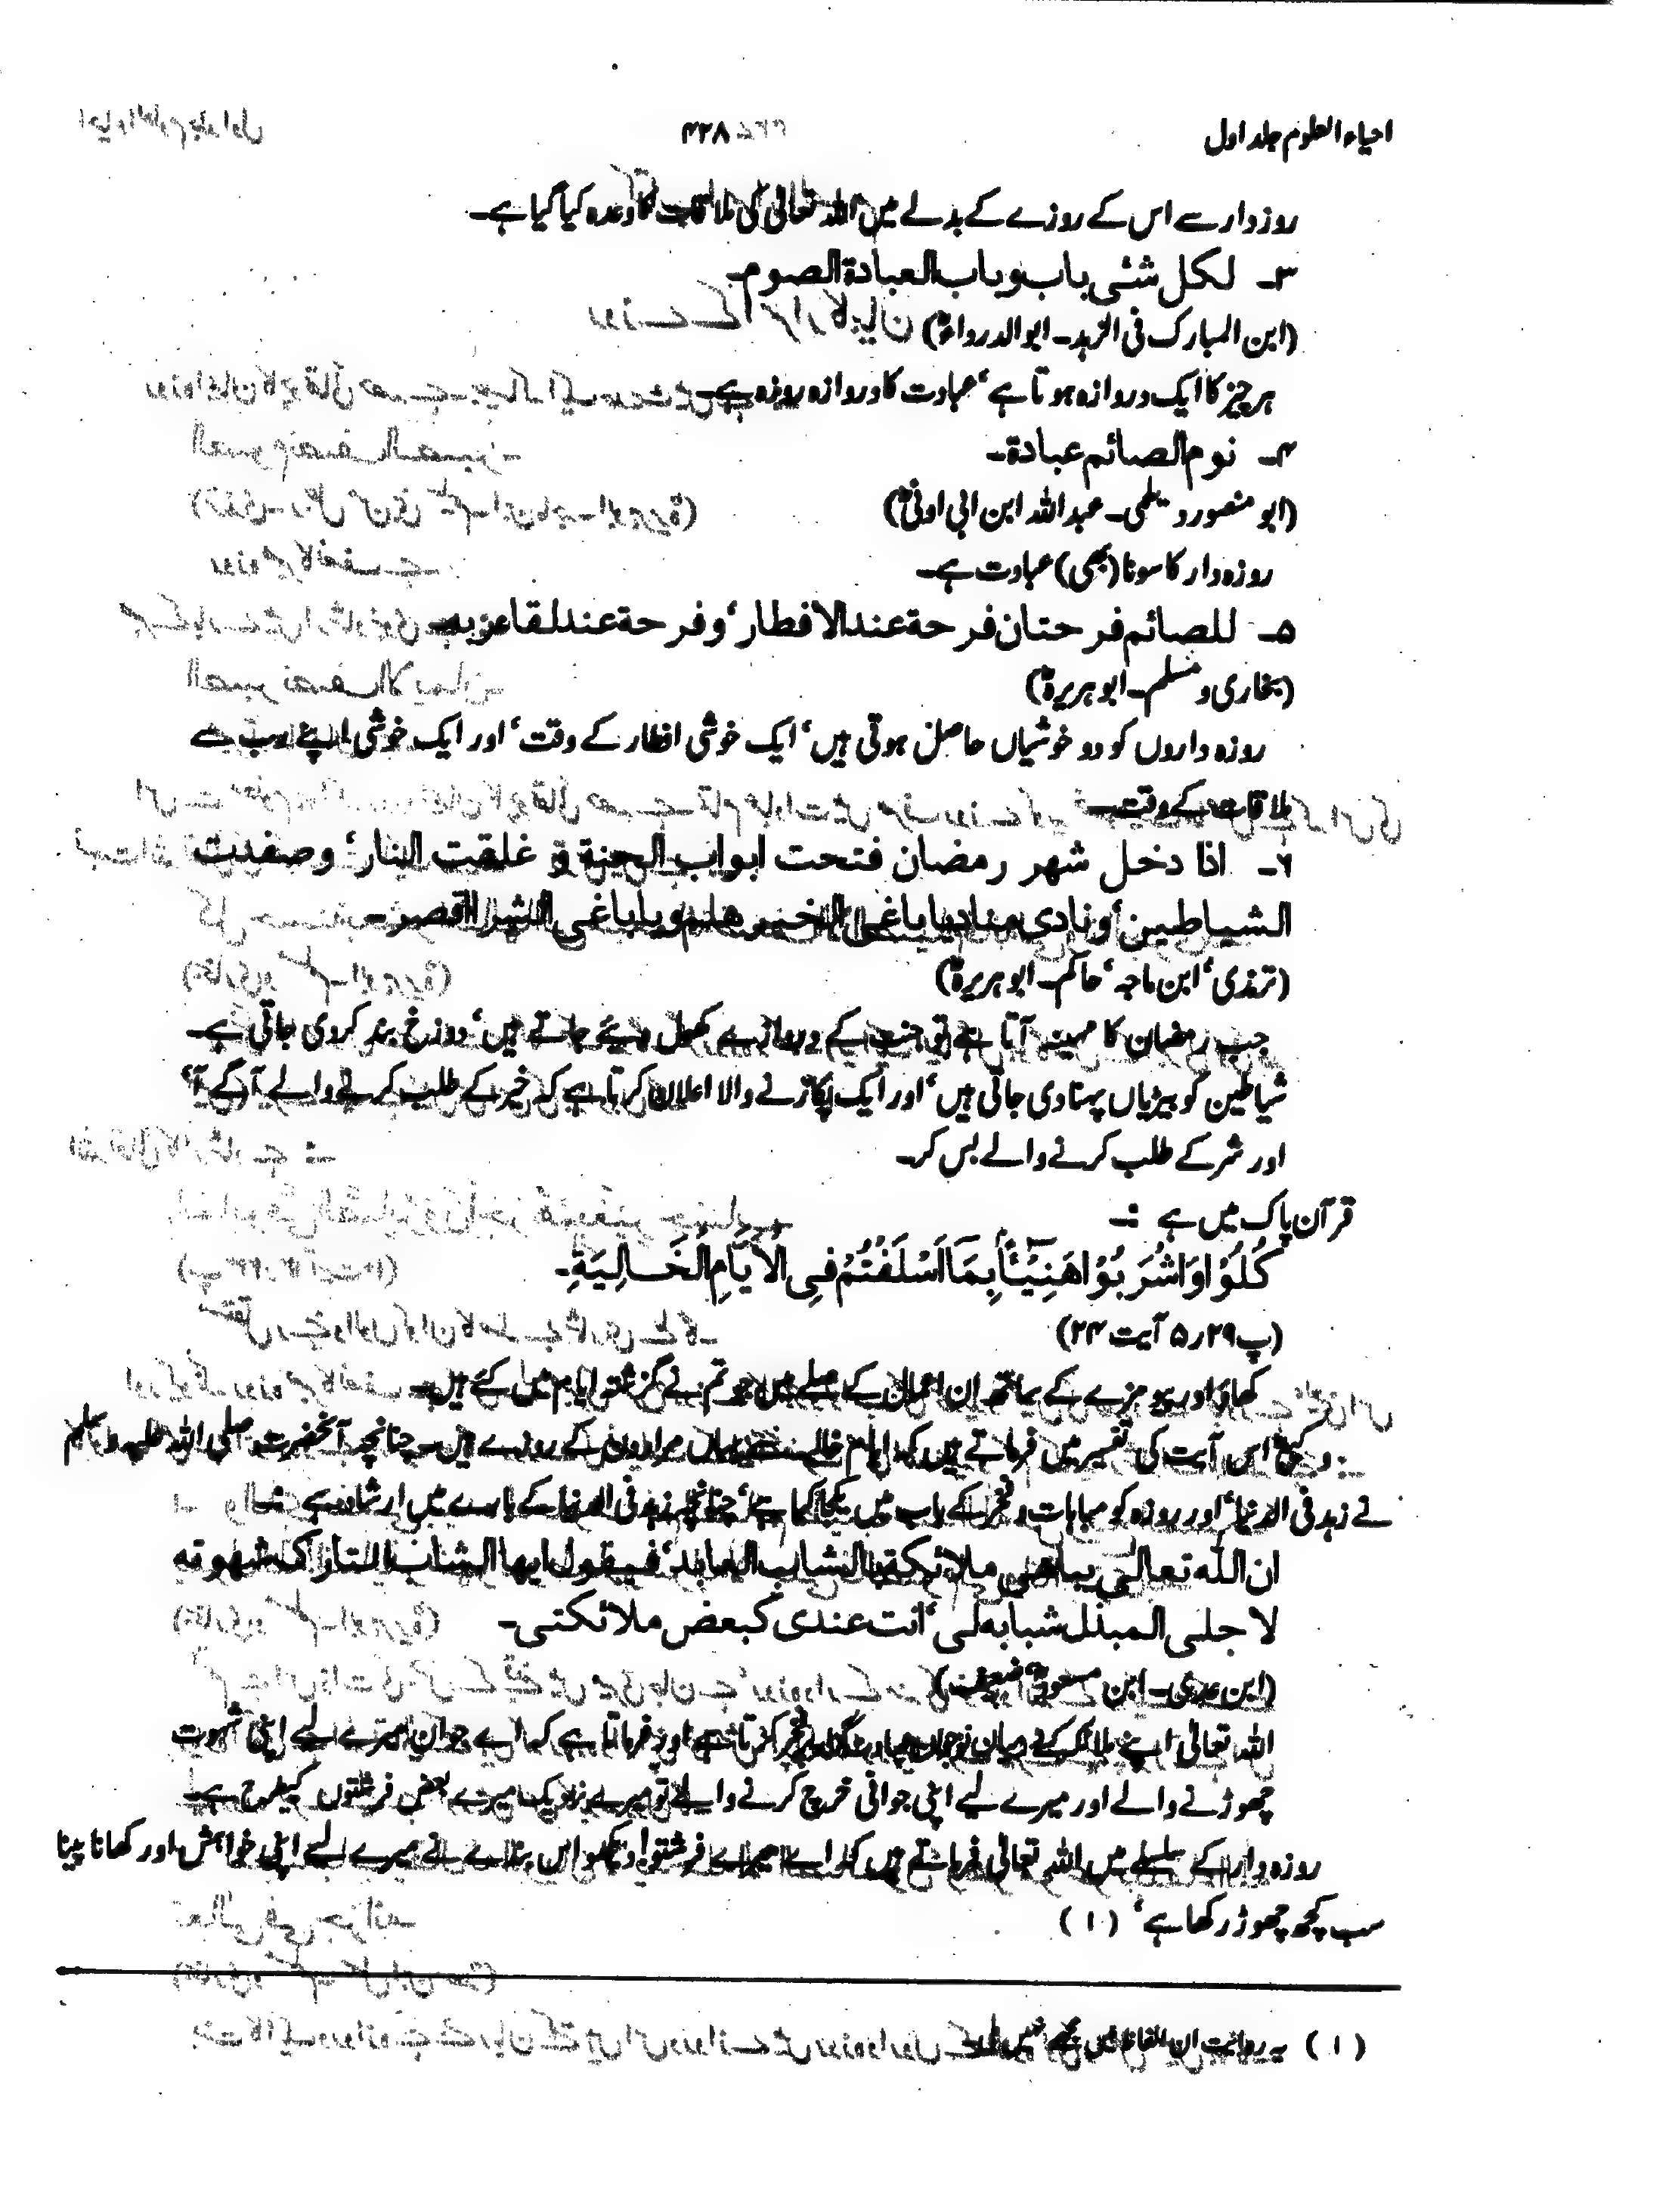 احیاء العلوم جلد اول
۴۲۸
روزدار سے اس کے روزے کے بدلے میں اللہ تعالیٰ کی ملاقات کا وعدہ کیا گیا ہے۔
۳۔ لکل شئی باب وباب العبادة الصوم۔
(ابن المبارک فی الزہد۔ ابوالدرداءؓ)
ہر چیز کا ایک دروازہ ہوتا ہے، عبادت کا دروازہ روزہ ہے۔
۴۔ نوم الصائم عبادة۔
(ابو منصور دیلمی۔ عبداللہ ابن ابی اوفیؓ)
روزہ دار کا سونا (بھی) عبادت ہے۔
۵۔ للصائم فرحتان فرحة عند الافطار، وفرحة عند لقاء ربه۔
(بخاری و مسلم۔ ابو ہریرةؓ)
روزہ داروں کو دو خوشیاں حاصل ہوتی ہیں، ایک خوشی افطار کے وقت، اور ایک خوشی اپنے رب سے
ملاقات کے وقت۔
۶۔ اذا دخل شهر رمضان فتحت ابواب الجنة و غلقت النار، وصفدت
الشیاطین، ونادی مناد یاباغی الخیر هلم ویاباغی الشر اقصر۔
(ترمذی، ابن ماجہ، حاکم۔ ابو ہریرةؓ)
جب رمضان کا مہینہ آتا ہے تو جنت کے دروازے کھول دیئے جاتے ہیں، دوزخ بند کردی جاتی ہے۔
شیاطین کو بیڑیاں پہنادی جاتی ہیں، اور ایک پکارنے والا اعلان کرتا ہے کہ خیر کے طلب کرنے والے آگے آ،
اور شر کے طلب کرنے والے بس کر۔
قرآن پاک میں ہے :۔
كُلُوْا وَاشْرَبُوْا هَنِيْٓئًا بِمَآ اَسْلَفْتُمْ فِى الْاَيَّامِ الْخَالِيَةِ۔
(پ۲۹ر۵ آیت ۲۴)
کھاؤ اور پیو مزے کے ساتھ ان اعمال کے صلے میں جو تم نے گزشتہ ایام میں کئے ہیں۔
وکیعؒ اس آیت کی تفسیر میں فرماتے ہیں کہ ایام خالیہ سے یہاں مراد ان کے روزے ہیں۔ چنانچہ آنحضرت صلی اللہ علیہ وسلم
نے زہد فی الدنیا، اور روزہ کو مباہات و فخر کے باب میں یکجا کیا ہے، چنانچہ زہد فی الدنیا کے بارے میں ارشاد ہے :۔
ان اللّٰه تعالیٰ یباهی ملائکته بالشاب العابد، فیقول ایها الشاب التارک شهوته
لاجلی المبذل شبابه لی، انت عندی کبعض ملائکتی۔
(ابن عدی۔ ابن مسعودؓ، ضعیف)
اللہ تعالیٰ اپنے ملائکہ کے درمیان نوجوان عبادت گذار پر فخر کرتا ہے اور فرماتا ہے کہ اے جوان میرے لیے اپنی شہوت
چھوڑنے والے اور میرے لیے اپنی جوانی خرچ کرنے والے تو میرے نزدیک میرے بعض فرشتوں کیطرح ہے۔
روزہ دار کے سلسلے میں اللہ تعالیٰ فرماتے ہیں کہ اے میرے فرشتو! دیکھو اس بندے نے میرے لیے اپنی خواہش اور کھانا پینا
سب کچھ چھوڑ رکھا ہے، (۱)
(۱) یہ روایت ان الفاظ میں مجھے نہیں ملی۔